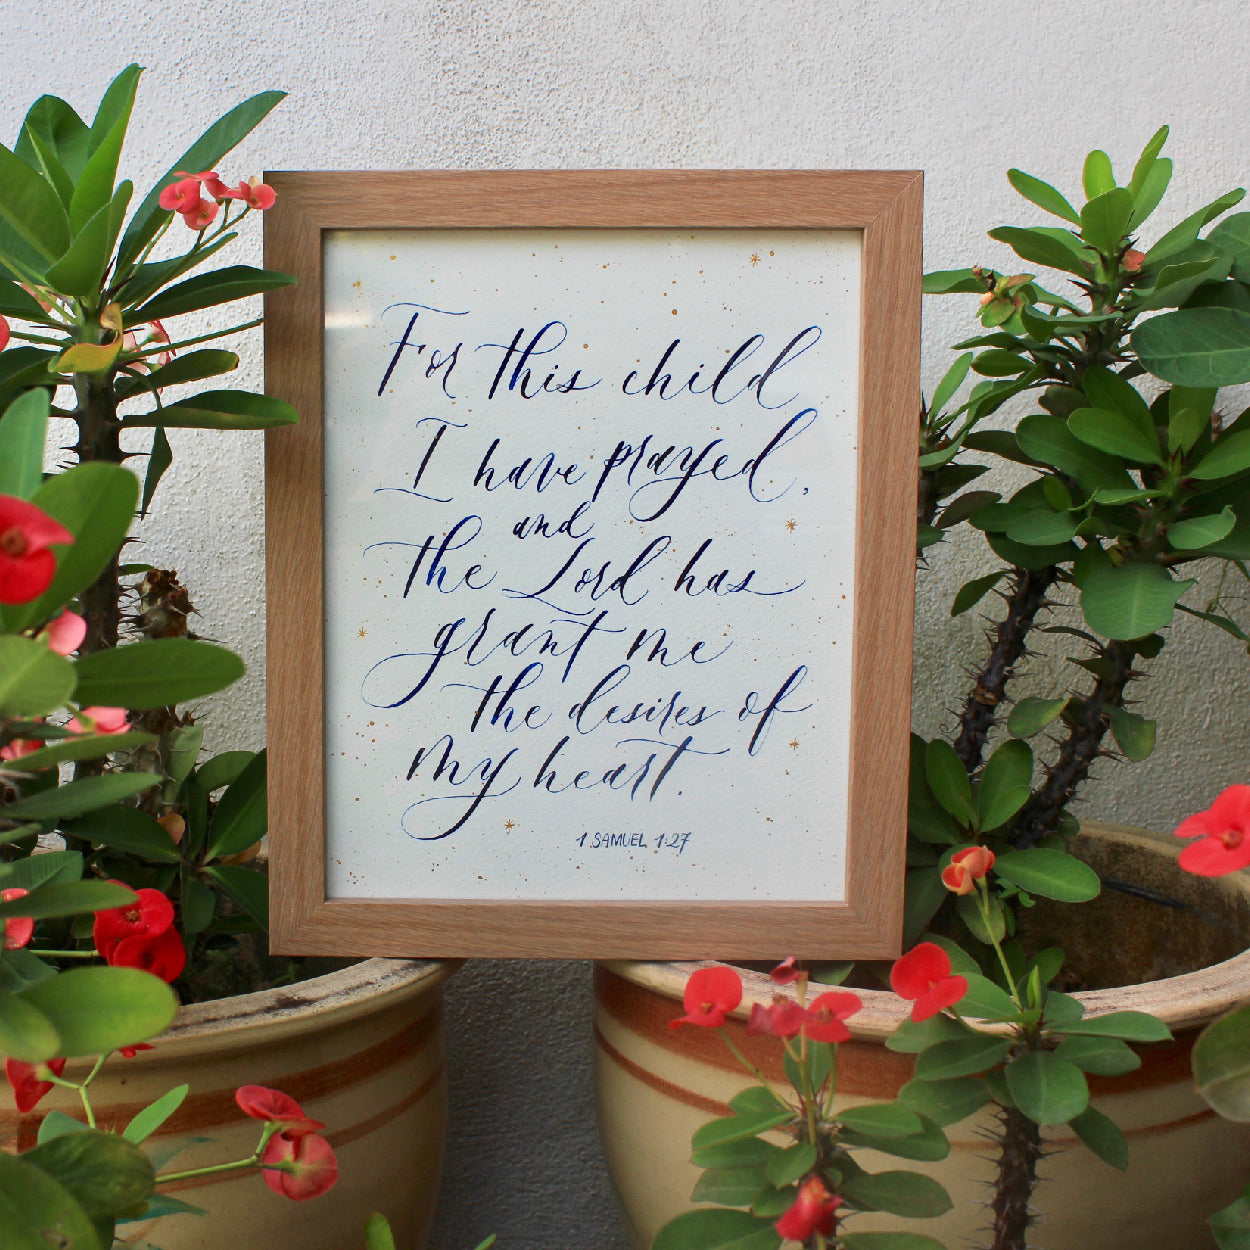 For this child
I have prayed,
and
the Lord has
grant me
the desires of
my heart.
1 SAMUEL 1:27